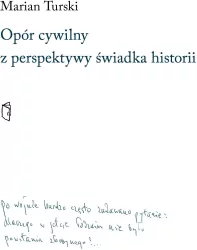 Marian Turski
Opór cywilny
z perspektywy świadka historii
po wojnie bardzo często zadawano pytanie:
dlaczego w getcie łódzkim nie było
powstania zbrojnego?...